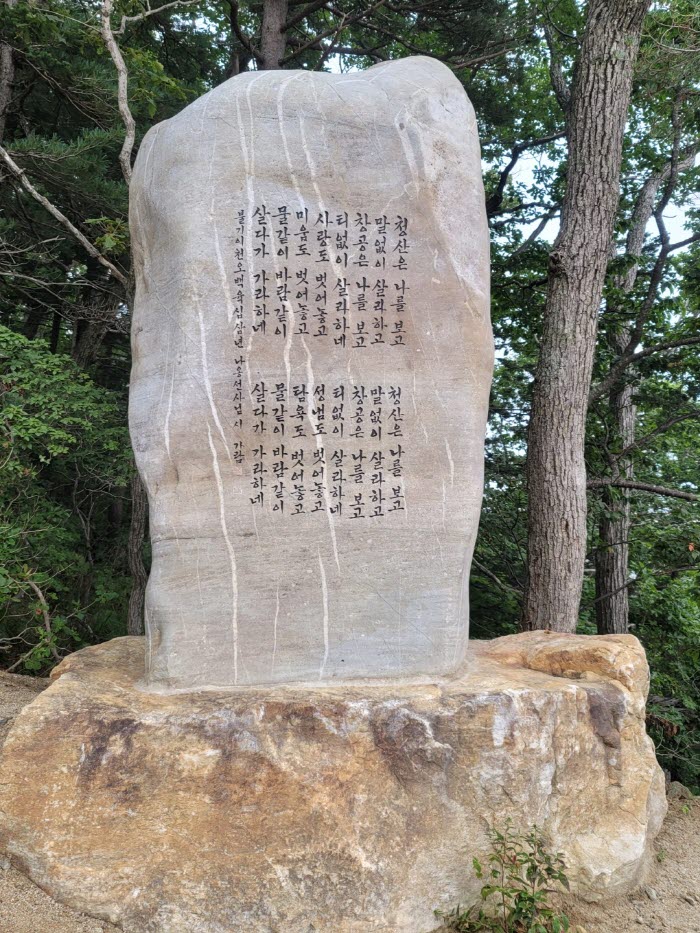 청산은 나를 보고
말없이 살라하고
창공은 나를 보고
티없이 살라하네
사랑도 벗어놓고
미움도 벗어놓고
물같이 바람같이
살다가 가라하네
청산은 나를 보고
말없이 살라하고
창공은 나를 보고
티없이 살라하네
성냄도 벗어놓고
탐욕도 벗어놓고
물같이 바람같이
살다가 가라하네
불기이천오백육십삼년 나옹선사님 시 가람